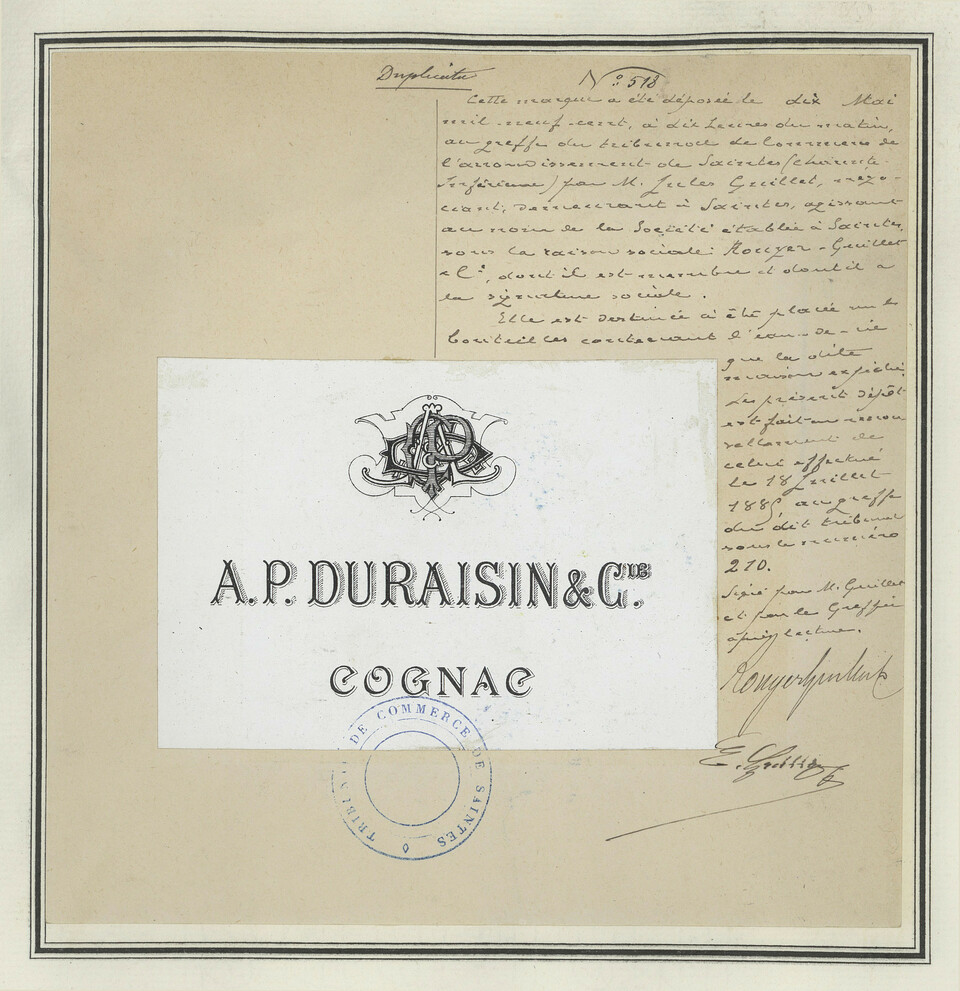 Duplicata
N° 518
Cette marque a été déposée le dix Mai
mil neuf cent, à dix heures du matin,
au greffe du tribunal de Commerce de
l'arrondissement de Saintes (Charente
Inférieure) par M. Jules Guillet, négo-
ciant, demeurant à Saintes, agissant
au nom de la Société établie à Saintes,
sous la raison sociale: Rouyer-Guillet
& Cie, dont il est membre et dont il a
la signature sociale.
Elle est destinée à être placée sur les
bouteilles contenant l'eau-de-vie
que la dite
maison expédie.
Le présent dépôt
est fait en renou
vellement de
celui effectué
le 18 Juillet
1885 au greffe
du dit tribunal
sous le numéro
210.
Signé par M. Guillet
et par le Greffier
après lecture.
Rouyer Guillet &
A.P. DURAISIN & CIE.
COGNAC
TRIBUNAL DE COMMERCE DE SAINTES